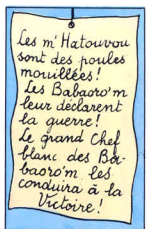 Les m'Hatouvou
sont des poules
mouillées!
Les Babaoro'm
leur déclarent
la guerre!
Le grand Chef
blanc des Ba-
baoro'm les
conduira à la
Victoire!